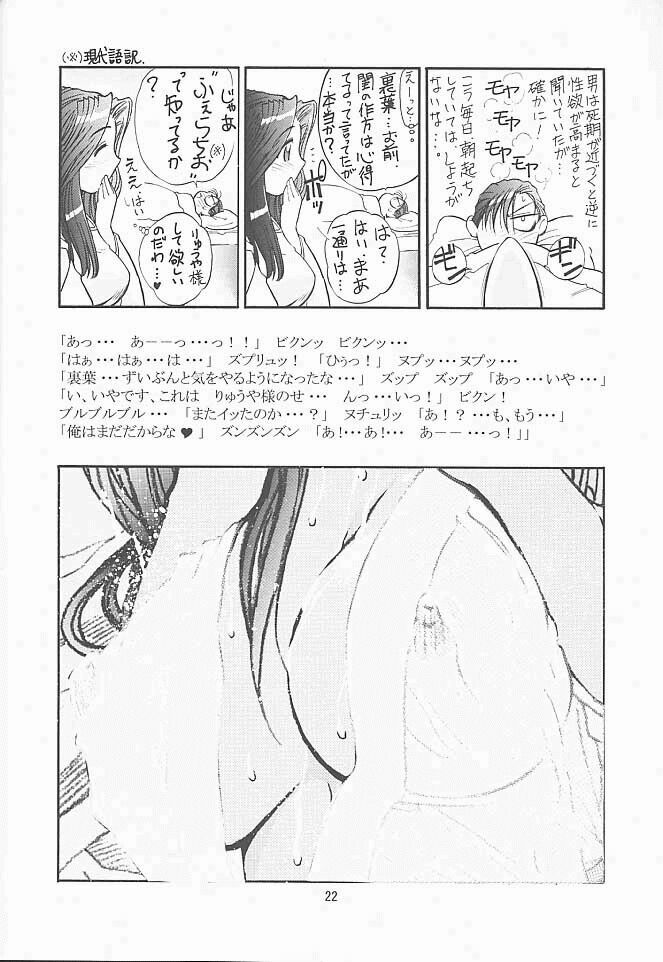 (※)現代語訳.
男は死期が近づくと逆に
性欲が高まると
聞いていたが…
確かに!
こう毎日朝起ち
していては、しょうが
ないな…。
モヤ
モヤ
モヤ
ギン
ギン
えーっと…
裏葉…お前
閨の作方は心得
てるって言ってたが
…本当か?
ポッ
は?
はい、まあ
一通りは…
じゃあ
"ぶぇらちお"(※)
って知ってるか
?
ええ…はい
りゅうや様
して欲しい
のだわ…♥
「あっ・・・　あーーっ・・・っ！！」　ビクンッ　ビクンッ・・・
「はぁ・・・はぁ・・・は・・・」　ズプリュッ！　「ひぅっ！」　ヌプッ・・・ヌプッ・・・
「裏葉・・・ずいぶんと気をやるようになったな・・・」　ズップ　ズップ　「あっ・・・いや・・・」
「い、いやです、これは　りゅうや様のせ・・・　んっ・・・いっ！」　ビクン！
ブルブルブル・・・　「またイッたのか・・・？」　ヌチュリッ　「あ！？・・・も、もう・・・」
「俺はまだだからな♥」　ズンズンズン　「あ！・・・あ！・・・　あーー・・・っ！」」
22